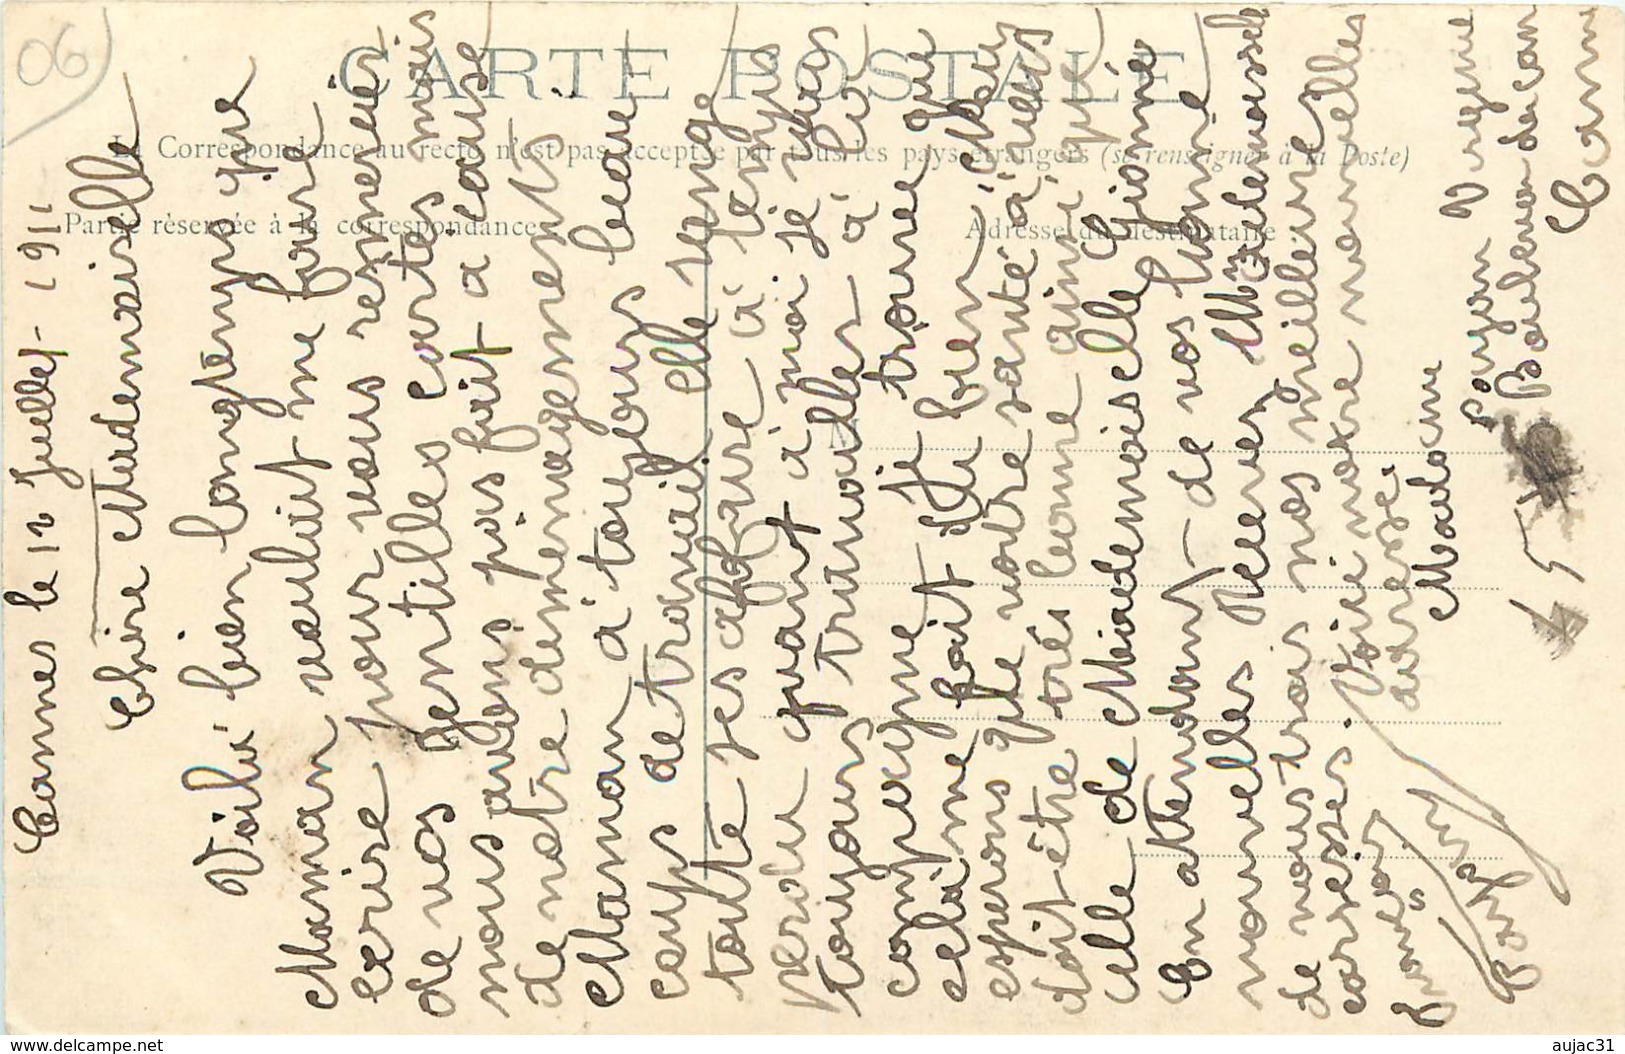 06
CARTE POSTALE
La Correspondance au recto n'est pas acceptée par tous les pays étrangers (se renseigner à la Poste)
Partie réservée à la correspondance
Adresse du destinataire
M
Cannes le 12 Juillet 1911
Chère Mademoiselle
Voila bien longtemps que
Maman voulait me faire
ecrire pour vous remercier
de vos gentilles cartes mais
nous avons pas fait à cause
de notre démenagements
Maman à toujours beau-
coup de travail elle range
toute ses affaire à temps
perdu quant à moi je vais
toujours travailler à la
compagne je trouve que
celà me fait du bien. Nous
esperons que votre santé à vous
doit être très bonne ainsi que
celle de Mademoiselle
En attendant de vos bonne
nouvelles Recever Mademoiselle
de nous trois nos meilleures
caresses. Voici notre nouvelles
adresse:
Madame
Boulevard du Can
Cann
www.delcampe.net
aujac31